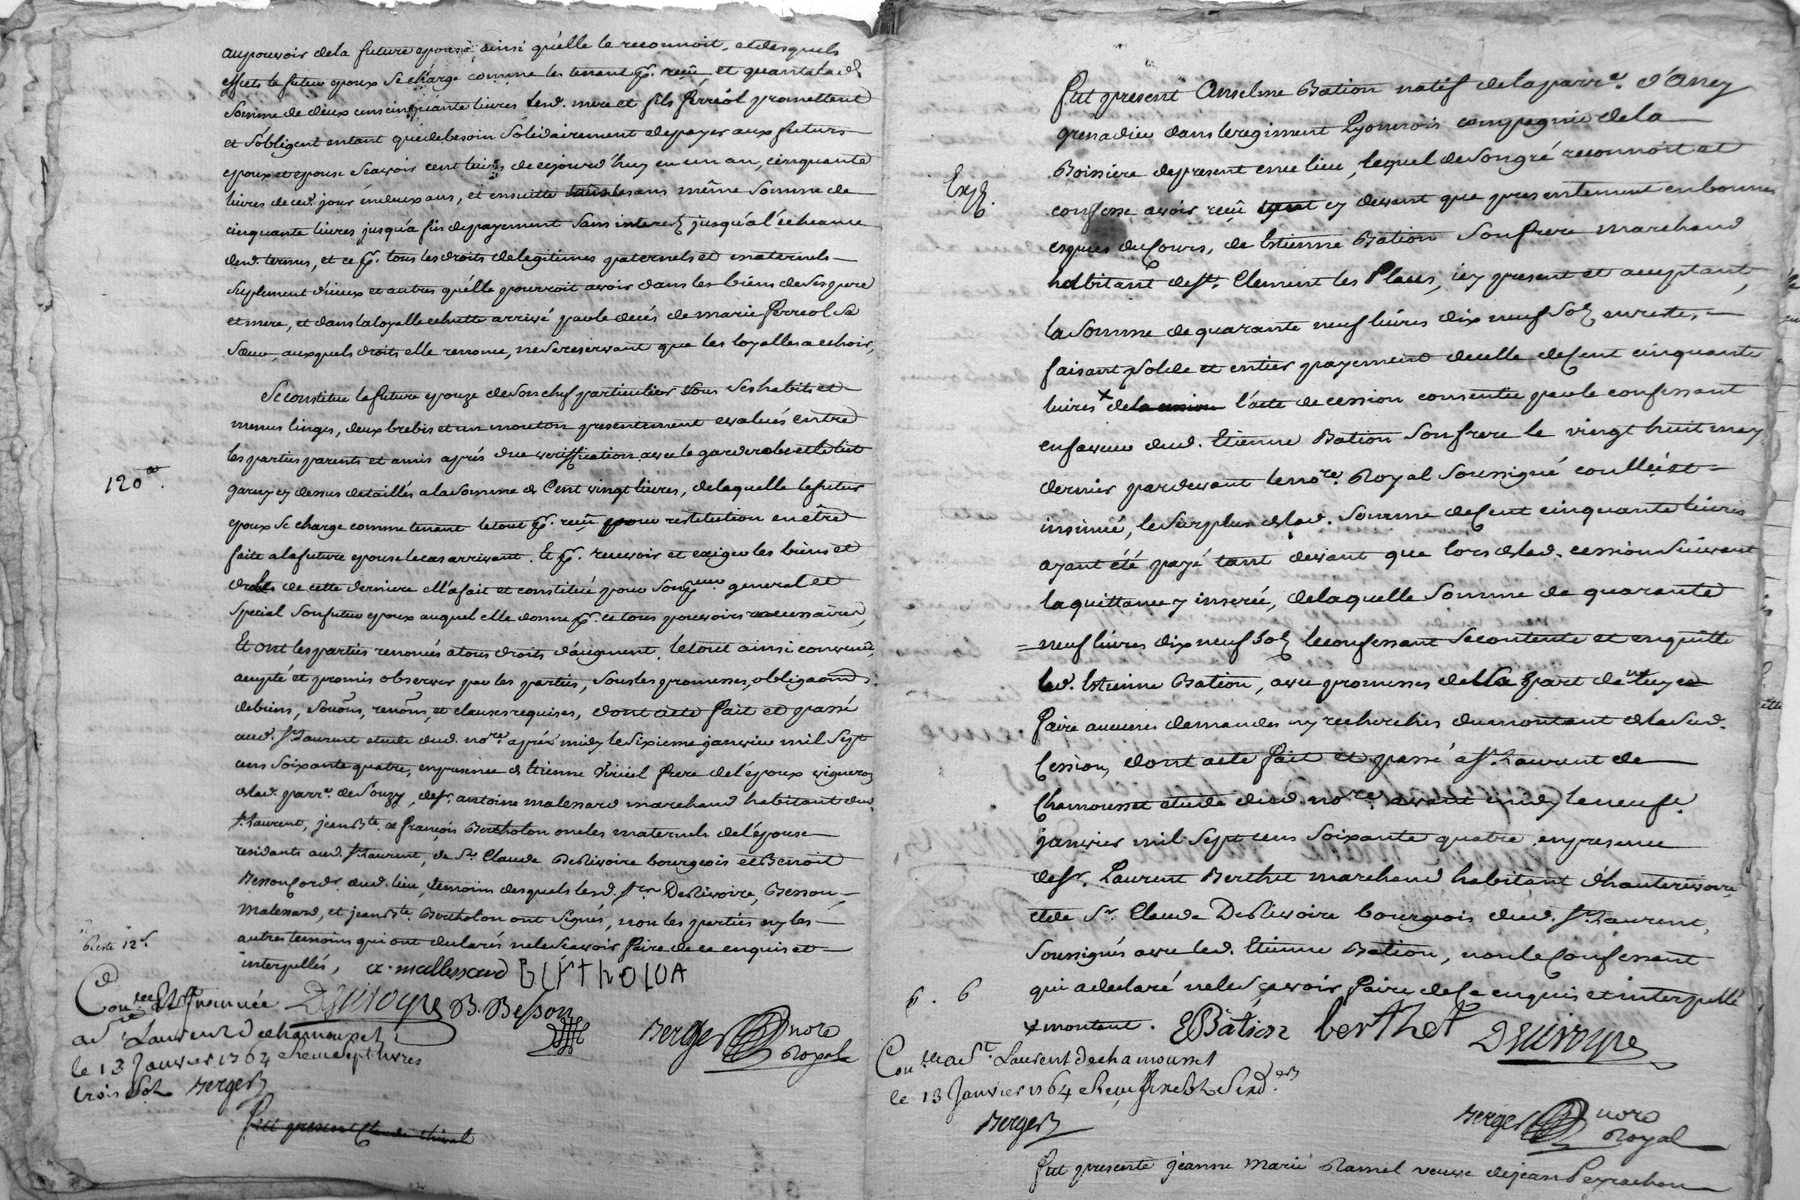 au pouvoir de la future epouse ainsi qu'elle le reconnoit, et desquels
effets le futur epoux se charge comme les tenant pr. reçu et quant a lad.
somme de deux cens cinquante livres lesd. mere et fils Ferréol promettent
et s'obligent entant que de besoin solidairement de payer aux futurs
epoux et epouse scavoir cent livres de ce jourd'huy en un an, cinquante
livres de ced. jour en deux ans, et ensuitte tous les ans même somme de
cinquante livres jusqu'a fin de payement sans interetz jusqu'a l'echeance
desd. termes, et ce pr. tous les droits de legitimes paternels et maternels
suplement d'iceux et autres qu'elle pourroit avoir dans les biens de ses pere
et mere, et dans la loyalle echutte arrivé par le decés de marie ferreol sa
sœur, auxquels droits elle renonce, ne se reservant que les loyalles a echoir,
Se constitue la future epouze de son chef particulier tous ses habits et
menus linges, deux brebis et un mouton presentement evalués entre
les parties parents et amis aprés due veriffication avec le garderobe et le lit
120
garny cy dessus detaillés a la somme de Cent vingt livres, de laquelle le futur
epoux se charge comme tenant le tout pr. reçu pour restitution en être
faite a la future epouse le cas arrivant. Et pr. recevoir et exiger les biens et
droits de cette derniere elle a fait et constitué pour son general et
special son futur epoux auquel elle donne pr. ce tous pouvoirs necessaires,
Et ont les parties renoncés a tous droits d'augment. le tout ainsi convenu,
accepté et promis observer par les parties, sous les promesses, obligaons
de biens, soumons, renons, et clauses requises, dont acte fait et passé
aud. St. Laurent etude dud. nore. aprés midy le sixieme janvier mil sept
cens soixante quatre, en presence de Etienne frere de l'époux vigneron
de lad. parre. de Souzy, de sr. antoine malessard marchand habitant aud.
St. Laurent, jean Bte. et françois Bertholon oncles maternels de l'épouse
residants aud. St. Laurent, de Sr. Claude Desrivoire bourgeois et Benoit
Besson Cordr. dud. lieu, temoins desquels lesd. srs. Desrivoire, Besson,
Malessard, et jean Bte. Bertholon ont signés, non les parties ny les
autres temoins qui ont declarés ne le scavoir faire de ce enquis et
interpellés, a. mallessard BERTHOLON
Reste 12s.
Conllé et Insinuée Desrivoyre B. Besson
a St. Laurent de chamousset
Berger nore Royal
le 13 Janvier 1764 Receu sept livres
trois sols Berger
Fut present Claude
Fut present Anselme Bation natif de la parre. d'Aney
grenadier dans le regiment Lyonnois compagnie de la
Boissiere de present en ce lieu, lequel de son gré reconnoit et
Exp.
confesse avoir reçu tant cy devant que presentement en bonnes
especes du cours, de Etienne Bation son frere marchand
habitant de St. Clement les Places, icy present et acceptant,
la somme de quarante neuf livres dix neuf solz en reste,
faisant solde et entier payement de celle de Cent cinquante
livres x de la cession l'acte de cession consentie par le confessant
en faveur dud. Etienne Bation son frere le vingt huit may
dernier pardevant le nore. Royal soussigné conllé et
insinué, le surplus de lad. somme de Cent cinquante livres
ayant été payé tant devant que lors de lad. cession suivant
la quittance y inserée, de laquelle somme de quarante
=neuf livres dix neuf solz le confessant se contente et en quitte
led. Etienne Bation, avec promesses de
faire aucunes demandes ny recherches du montant de la sud.
Cession, dont acte fait et passé a St. Laurent de
Chamousset etude dud. nore. avant midy le neufe.
janvier mil sept cens soixante quatre en presence
de sr. Laurent Berthet marchand habitant d'hauterivoire,
et de Sr. Claude Desrivoire bourgeois dud. St. Laurent,
soussignés avec led. Etienne Bation, non le Confessant
qui a declaré ne le sçavoir faire de ce enquis et interpellé
6. 6
x montant. EBâtion berthet Desrivoyre
Conllé a St. Laurent de chamousset
le 13 Janvier 1764 Receu
Berger
Berger nore Royal
Fut presente jeanne marie Ramel veuve de jean Peyrachon